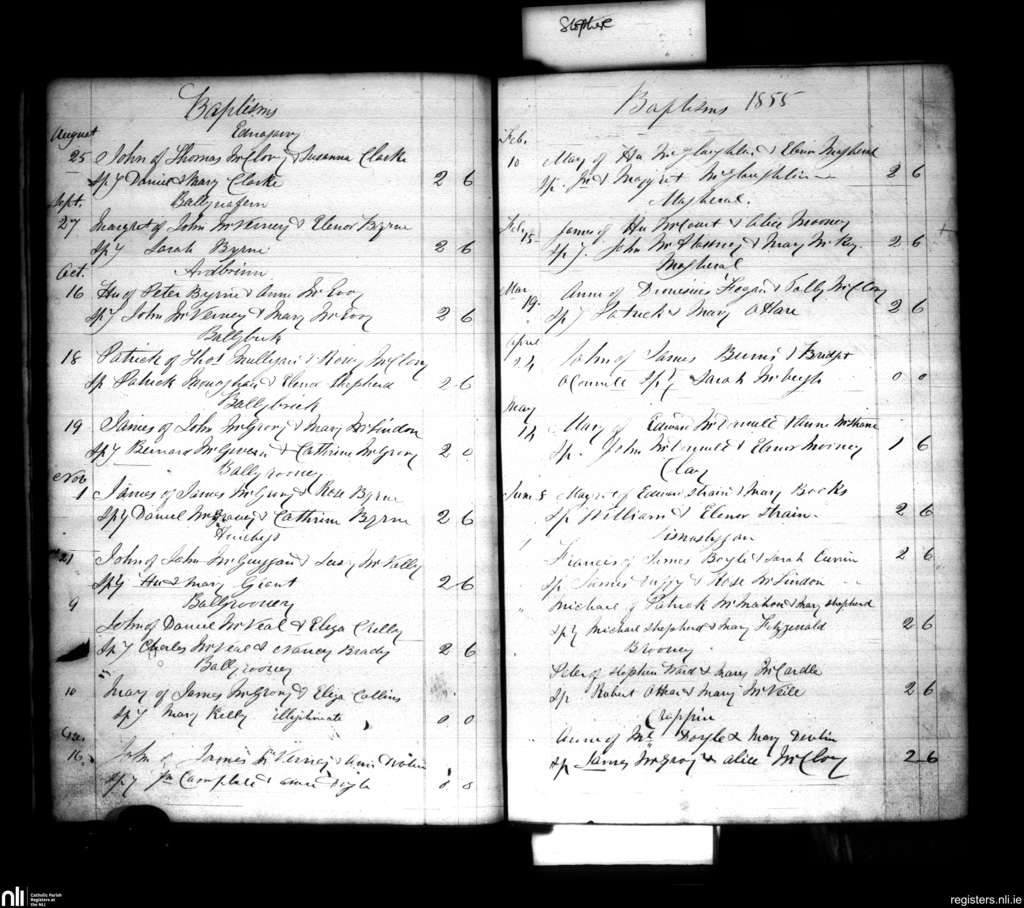 Stephie
Baptisms
August
25 John of Thomas McCloy & Susanna Clarke
Sp y Daniel & Mary Clarke 2 6
Sept. Ballynafern
27 Margret of John McVerney & Elenor Byrne
Sp y Sarah Byrne 2 6
Oct. Ardbrinn
16 Hu of Peter Byrne & Anne McEvoy
Sp y John McVerney & Mary McEvoy 2 6
Ballybrick
18 Patrick of Thos Mulligan & Rosey McClory
Sp Patrick Monaghan & Elenor Shepherd 2 6
Ballybrick
19 James of John McGrory & Mary McLindon
Sp y Bernard McGivern & Cathrine McGrory 2 0
Ballyrooney
Nov
1 James of James McGrory & Rose Byrne
Sp y Daniel & Cathrine Byrne 2 6
21 John of John McGuiggan & Susy McNally
Sp y Hu & Mary Grant 2 6
Ballyrooney
9 John of Daniel McVeal & Eliza
Sp y Charles McVeal & Nancy Brady 2 6
Ballyrooney
10 Mary of James McGrory & Eliza Collins
Sp y Mary Kelly illigitimate 0 0
16 John of James McVerney & Devlin
Sp y Jn Campbell & Anne
Baptisms 1855
Feb.
10 Mary of Hu McGlaughlin & Elenor Magheral
Sp. Jn & Margret McGlaughlin 2 6
Magheral.
Feby 15 James of Hu McCourt & Alice Mooney
Sp y. John & Mary McKey 2 6
Magheral
Mar 19. Anne of Dionisius Hogan & Sally McCloy
Sp y Patrick & Mary OHare 2 6
April
24 John of James Burns & Bridget
OConnell Sp y Sarah McVeigh 0 0
May
14 Mary of Edward & Anne McShane
Sp. John & Elenor Morney 1 6
Clay
June 8 Margret of Edward Strain & Mary Books
Sp William & Elenor Strain 2 6
Lisnaslygan
Francis of James Boyle & Sarah Curran 2 6
Sp James Duffy & Rose McLindon
Michael of Patrick McMahon & Mary Shepherd
Sp y Michael Shepherd & Mary Fitzgerald 2 6
Brooney
Peter of Stephen Ward & Mary McCardle
Sp Robert OHare & Mary McVeile 2 6
Anne of Doyle & Mary Devlin
Sp James McGrory & Alice McCloy 2 6
nli
Catholic Parish
Registers at
the NLI
registers.nli.ie